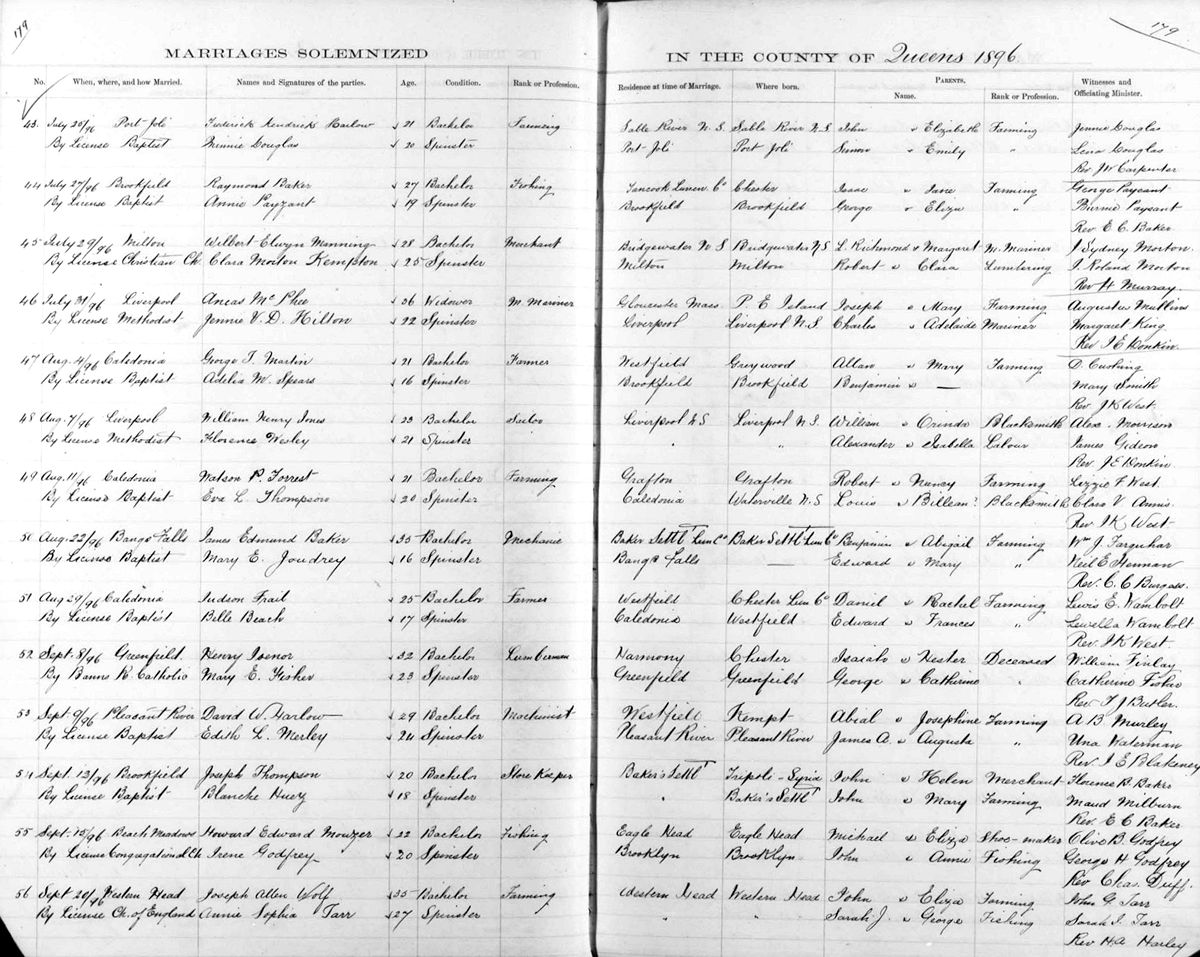 179
179
MARRIAGES SOLEMNIZED IN THE COUNTY OF Queens 1896
No. When, where, and how Married. Names and Signatures of the parties. Age. Condition. Rank or Profession. Residence at time of Marriage. Where born. PARENTS. Name. Rank or Profession. Witnesses and Officiating Minister.
43. July 25/96 Port Joli Frederick Kendrick Harlow 21 Bachelor Farming Sable River N.S. Sable River N.S. John " Elizabeth Farming Jennie Douglas
By License Baptist Minnie Douglas 20 Spinster Port Joli Port Joli Simon " Emily " Lena Douglas
Rev J W Carpenter
44 July 27/96 Brookfield Raymond Baker 27 Bachelor Fishing Tancook Lunen. Co Chester Isaac " Jane Farming George Payzant
By License Baptist Annie Payzant 19 Spinster Brookfield Brookfield George " Eliza " Burnie Payzant
Rev E C Baker
45 July 29/96 Milton Wilbert Elwyn Manning 28 Bachelor Merchant Bridgewater N S Bridgewater N S L. Richmond " Margaret M. Mariner J Sydney Morton
By License Christian Ch. Clara Morton Kempton 25 Spinster Milton Milton Robert " Clara Lumbering J. Roland Morton
Rev H Murray.
46 July 31/96 Liverpool Aneas McPhee 36 Widower M. Mariner Gloucester Mass P. E Island Joseph " Mary Farming Augustus Mullins
By License Methodist Jennie V. D. Hilton 22 Spinster Liverpool Liverpool N.S Charles " Adelaide Mariner Margaret King
Rev I E Donkin.
47 Aug. 4/96 Caledonia George T. Martin 21 Bachelor Farmer Westfield Greywood Allan " Mary Farming D. Cushing
By License Baptist Adelia M. Spears 16 Spinster Brookfield Brookfield Benjamin " — Mary Smith
Rev. J K West.
48 Aug. 7/96 Liverpool William Henry Jones 23 Bachelor Sailor Liverpool N S Liverpool N.S. William " Orinda Blacksmith Alex. Morrison
By License Methodist Florence Wesley 21 Spinster " " Alexander " Isabella Labour James Gideon
Rev. J E Donkin
49 Aug. 11/96 Caledonia Watson P. Forrest 21 Bachelor Farming Grafton Grafton Robert " Nancy Farming Lizzie F West.
By License Baptist Eva L. Thompson 20 Spinster Caledonia Waterville N.S Louis " Billean? Blacksmith Clara V. Annis
Rev J K West
50 Aug. 22/96 Bangs Falls James Edmund Baker 35 Bachelor Mechanic Baker Settlt Lun Co Baker Settlt Lun Co Benjamin " Abigail Farming Wm J. Farquhar
By License Baptist Mary E. Joudrey 16 Spinster Bangs Falls — Edward " Mary " Neil E Herman
Rev. C. C Burgess.
51 Aug 29/96 Caledonia Judson Frail 25 Bachelor Farmer Westfield Chester Lun Co Daniel " Rachel Farming Lewis E. Wambolt
By License Baptist Belle Beach 17 Spinster Caledonia Westfield Edward " Frances " Lewella Wambolt
Rev. J K West.
52 Sept. 8/96 Greenfield. Henry Isenor 32 Bachelor Lumberman Harmony Chester Isaiah " Hester Deceased William Finlay
By Banns R. Catholic Mary E. Fisher 23 Spinster Greenfield Greenfield George " Catherine " Catherine Fisher
Rev. T J Butler.
53 Sept. 9/96 Pleasant River David W. Harlow 29 Bachelor Machinist Westfield Kempt Abial " Josephine Farming A B Murley
By License Baptist Edith L. Merley 24 Spinster Pleasant River Pleasant River James A. " Augusta " Una Waterman
Rev. J E Blakeney
54 Sept. 12/96 Brookfield Joseph Thompson 20 Bachelor Store Keeper Baker's Settlt Tripole - Syria John " Helen Merchant Florence B. Baker
By License Baptist Blanche Huey 18 Spinster " Baker's Settlt John " Mary Farming Maud Milburn
Rev. E C Baker
55 Sept. 15/96 Beach Meadows Howard Edward Mouzer 22 Bachelor Fishing Eagle Head Eagle Head Michael " Eliza Shoe-maker Olive B. Godfrey
By License Congregational Ch Irene Godfrey 20 Spinster Brooklyn Brooklyn John " Annie Fishing George H Godfrey
Rev Chas. Duff.
56 Sept 20/96 Western Head Joseph Allen Wolf 35 Bachelor Farming Western Head Western Head John " Eliza Farming John G. Tarr
By License Ch. of England Annie Sophia Tarr 27 Spinster " " Sarah J. " George Fishing Sarah I. Tarr
Rev H.A Harley